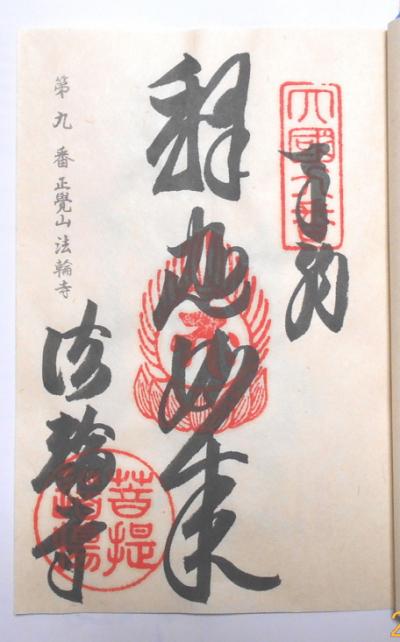 四國九番
奉納
釋迦如来
第九番正覺山法輪寺
法輪寺
菩提
道場